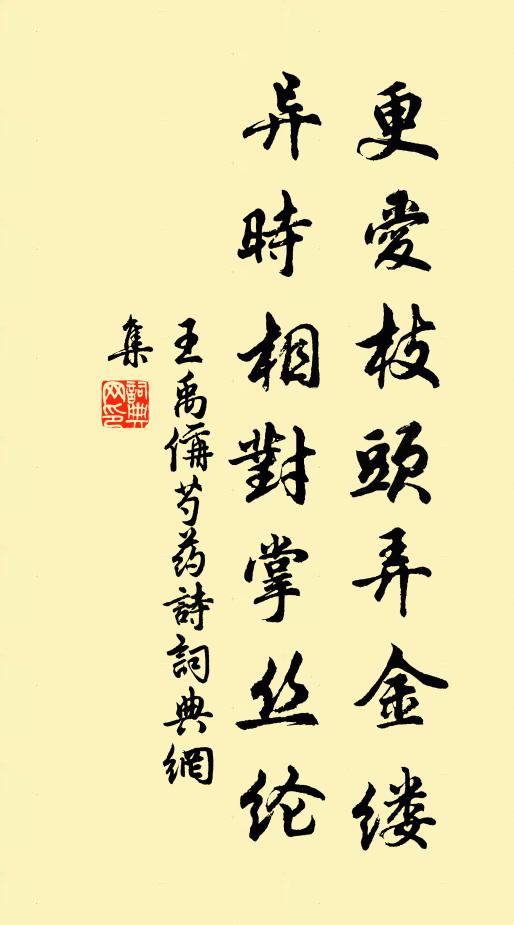 更愛枝頭弄金缕
异時相對掌丝纶
王禹偁芍药詩詞典網
集
詞典網印